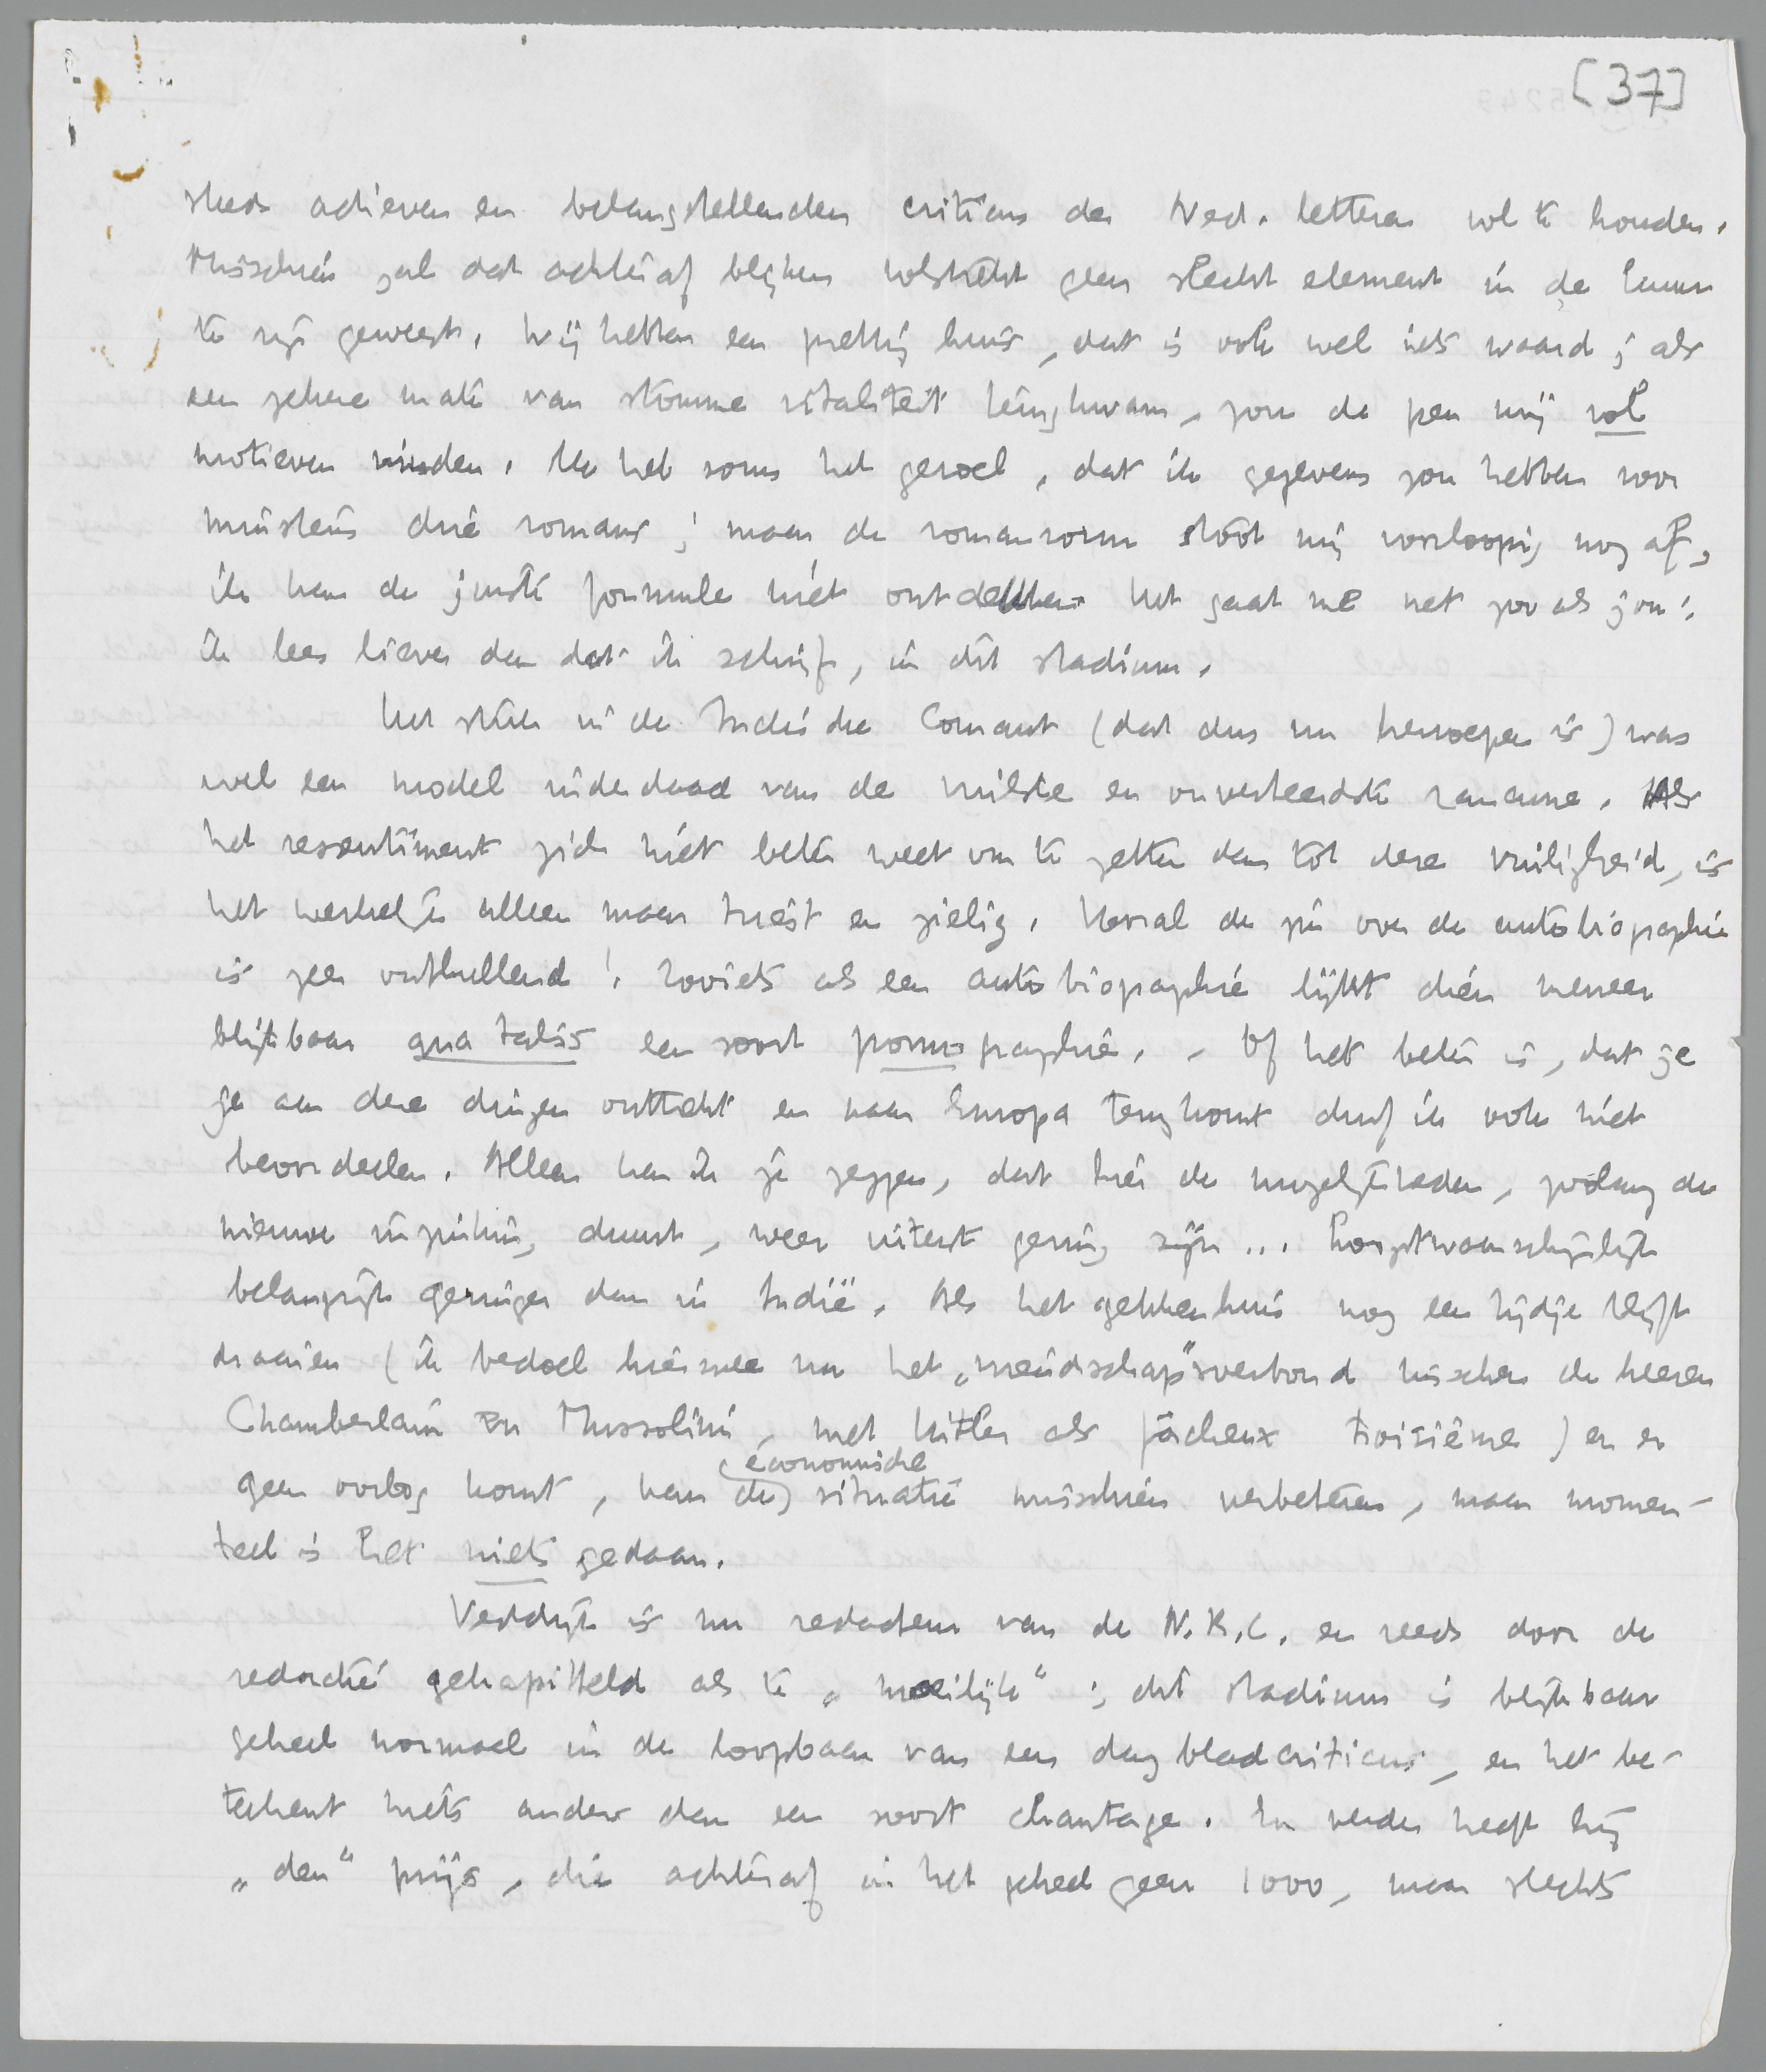 [37]
steeds actieven en belangstellenden criticus der Ned. letteren vol te houden.
Misschien zal dat achteraf blijken volstrekt geen slecht element in de kuur
te zijn geweest. Wij hebben een prettig huis, dat is ook wel iets waard; als
een zekere mate van stomme vitaliteit terugkwam, zou de pen mij vol
motieven vinden. Ik heb soms het gevoel, dat ik gegevens zou hebben voor
minstens drie romans; maar de romanvorm stoot mij voorloopig nog af,
ik kan de juiste formule niet ontdekken. Het gaat me net zoo als jou:
ik lees liever dan dat ik schrijf, in dit stadium.
Het stuk in de Indische Courant (dat dus nu herroepen is) was
wel een model inderdaad van de vuilste en onverteerdste rancune. Als
het ressentiment zich niet beter weet om te zetten dan tot deze vuiligheid, is
het werkelijk alleen maar triest en zielig. Vooral de zin over de autobiographie
is zeer onthullend! Zooiets als een autobiographie lijkt dien meneer
blijkbaar qua talis een soort pornographie. - Of het beter is, dat je
je aan deze dingen onttrekt en naar Europa terugkomt durf ik ook niet
beoordeelen. Alleen kan ik je zeggen, dat hier de mogelijkheden, zoolang de
nieuwe inzinking duurt, weer uiterst gering zijn... hoogstwaarschijnlijk
belangrijk geringer dan in Indië. Als het gekkenhuis nog een tijdje blijft
draaien (ik bedoel hiermee nu het „vriendschaps”verbond tusschen de heeren
Chamberlain en Mussolini, met Hitler als fâcheux troisième) en er
geen oorlog komt, kan de economische situatie misschien verbeteren, maar momen-
teel is het niets gedaan.
Vestdijk is nu redacteur van de N.R.C. en reeds door de
redactie gekapitteld als te „moeilijk”; dit stadium is blijkbaar
geheel normaal in de loopbaan van een dagbladcriticus, en het be-
teekent niets anders dan een soort chantage. En verder heeft hij
„den” prijs, die achteraf in het geheel geen 1000, maar slechts